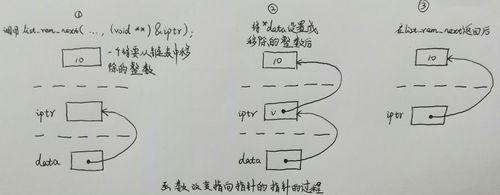 ①
调用 list_rem_next( ..., (void **) &iptr);
10
一个将要从链表中移
除的整数
iptr
data
②
将*data设置成
移除的整数后
10
iptr
data
③
在list_rem_next返回后
10
iptr
函数改变指向指针的指针的过程